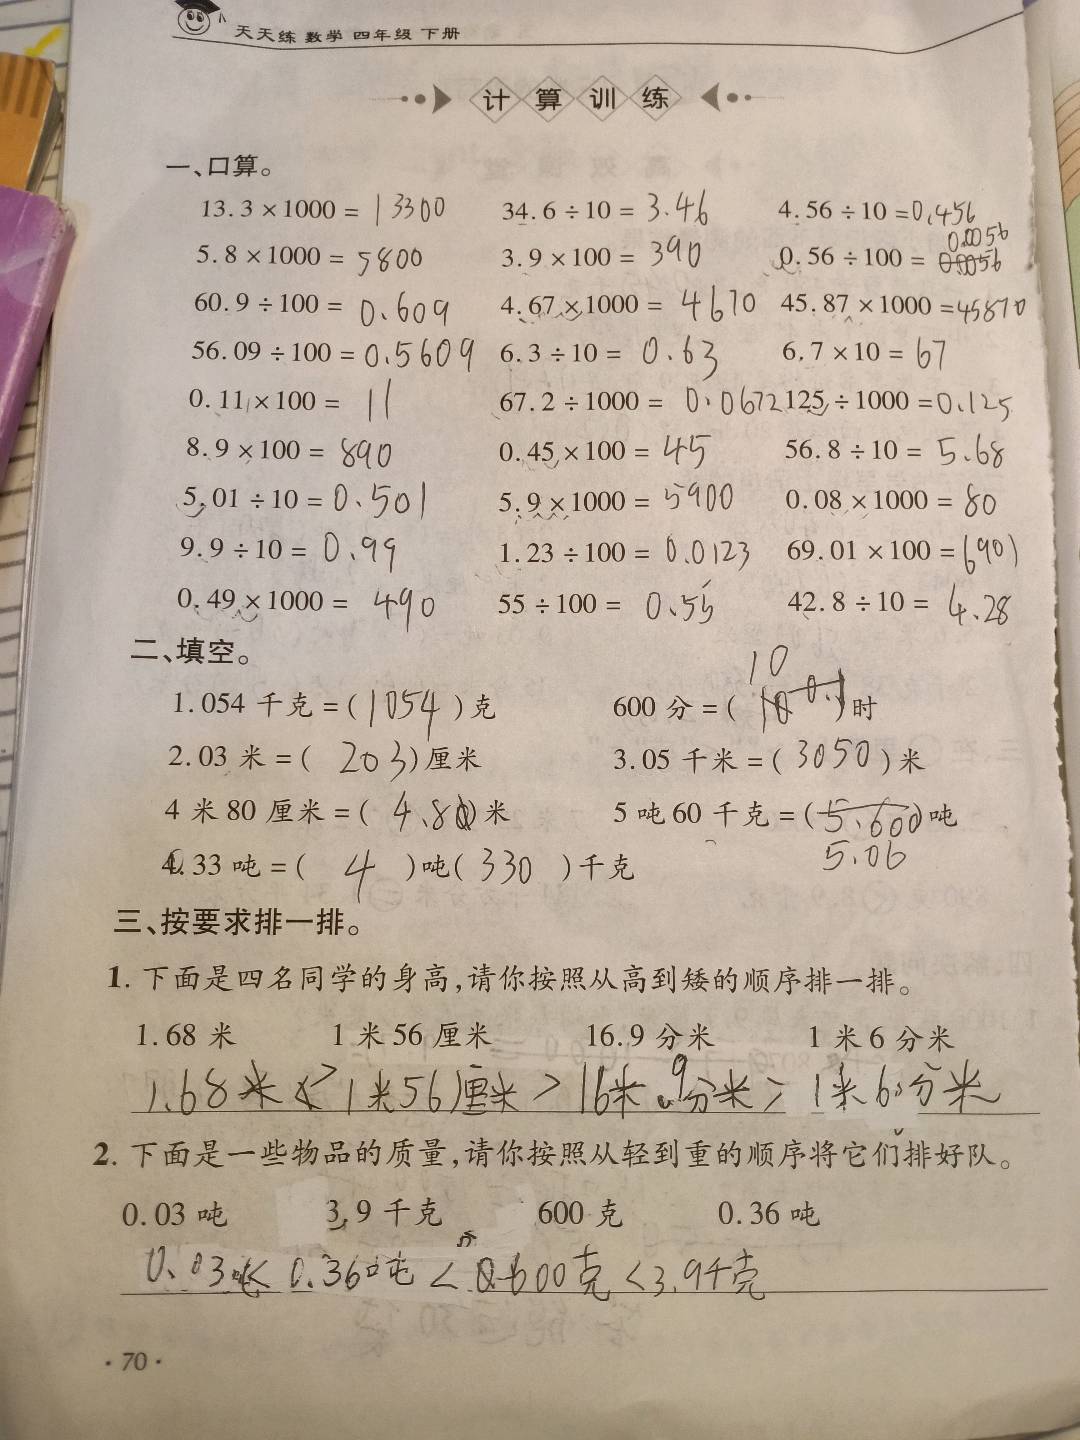 天天练 数学 四年级 下册
计算训练
一、口算。
13.3×1000= 13300 34.6÷10= 3.46 4.56÷10= 0.456
0.0056
5.8×1000= 5800 3.9×100= 390 0.56÷100= 0.0056
60.9÷100= 0.609 4.67×1000= 4670 45.87×1000= 45870
56.09÷100= 0.5609 6.3÷10= 0.63 6.7×10= 67
0.11×100= 11 67.2÷1000= 0.0672 125÷1000= 0.125
8.9×100= 890 0.45×100= 45 56.8÷10= 5.68
5.01÷10= 0.501 5.9×1000= 5900 0.08×1000= 80
9.9÷10= 0.99 1.23÷100= 0.0123 69.01×100= 6901
0.49×1000= 490 55÷100= 0.55 42.8÷10= 4.28
二、填空。
10
1.054 千克=( 1054 )克 600 分=( 10 0.1 )时
2.03 米=( 203 )厘米 3.05 千米=( 3050 )米
4 米 80 厘米=( 4.80 )米 5 吨 60 千克=( 5.600 )吨
5.06
4.33 吨=( 4 )吨( 330 )千克
三、按要求排一排。
1. 下面是四名同学的身高,请你按照从高到矮的顺序排一排。
1.68 米 1 米 56 厘米 16.9 分米 1 米 6 分米
1.68米 > 1米56厘米 > 16米.9分米 > 1米6分米
2. 下面是一些物品的质量,请你按照从轻到重的顺序将它们排好队。
0.03 吨 3.9 千克 600 克 0.36 吨
0.03吨< 0.36吨 < 0.600千克 <3.9千克
·70·